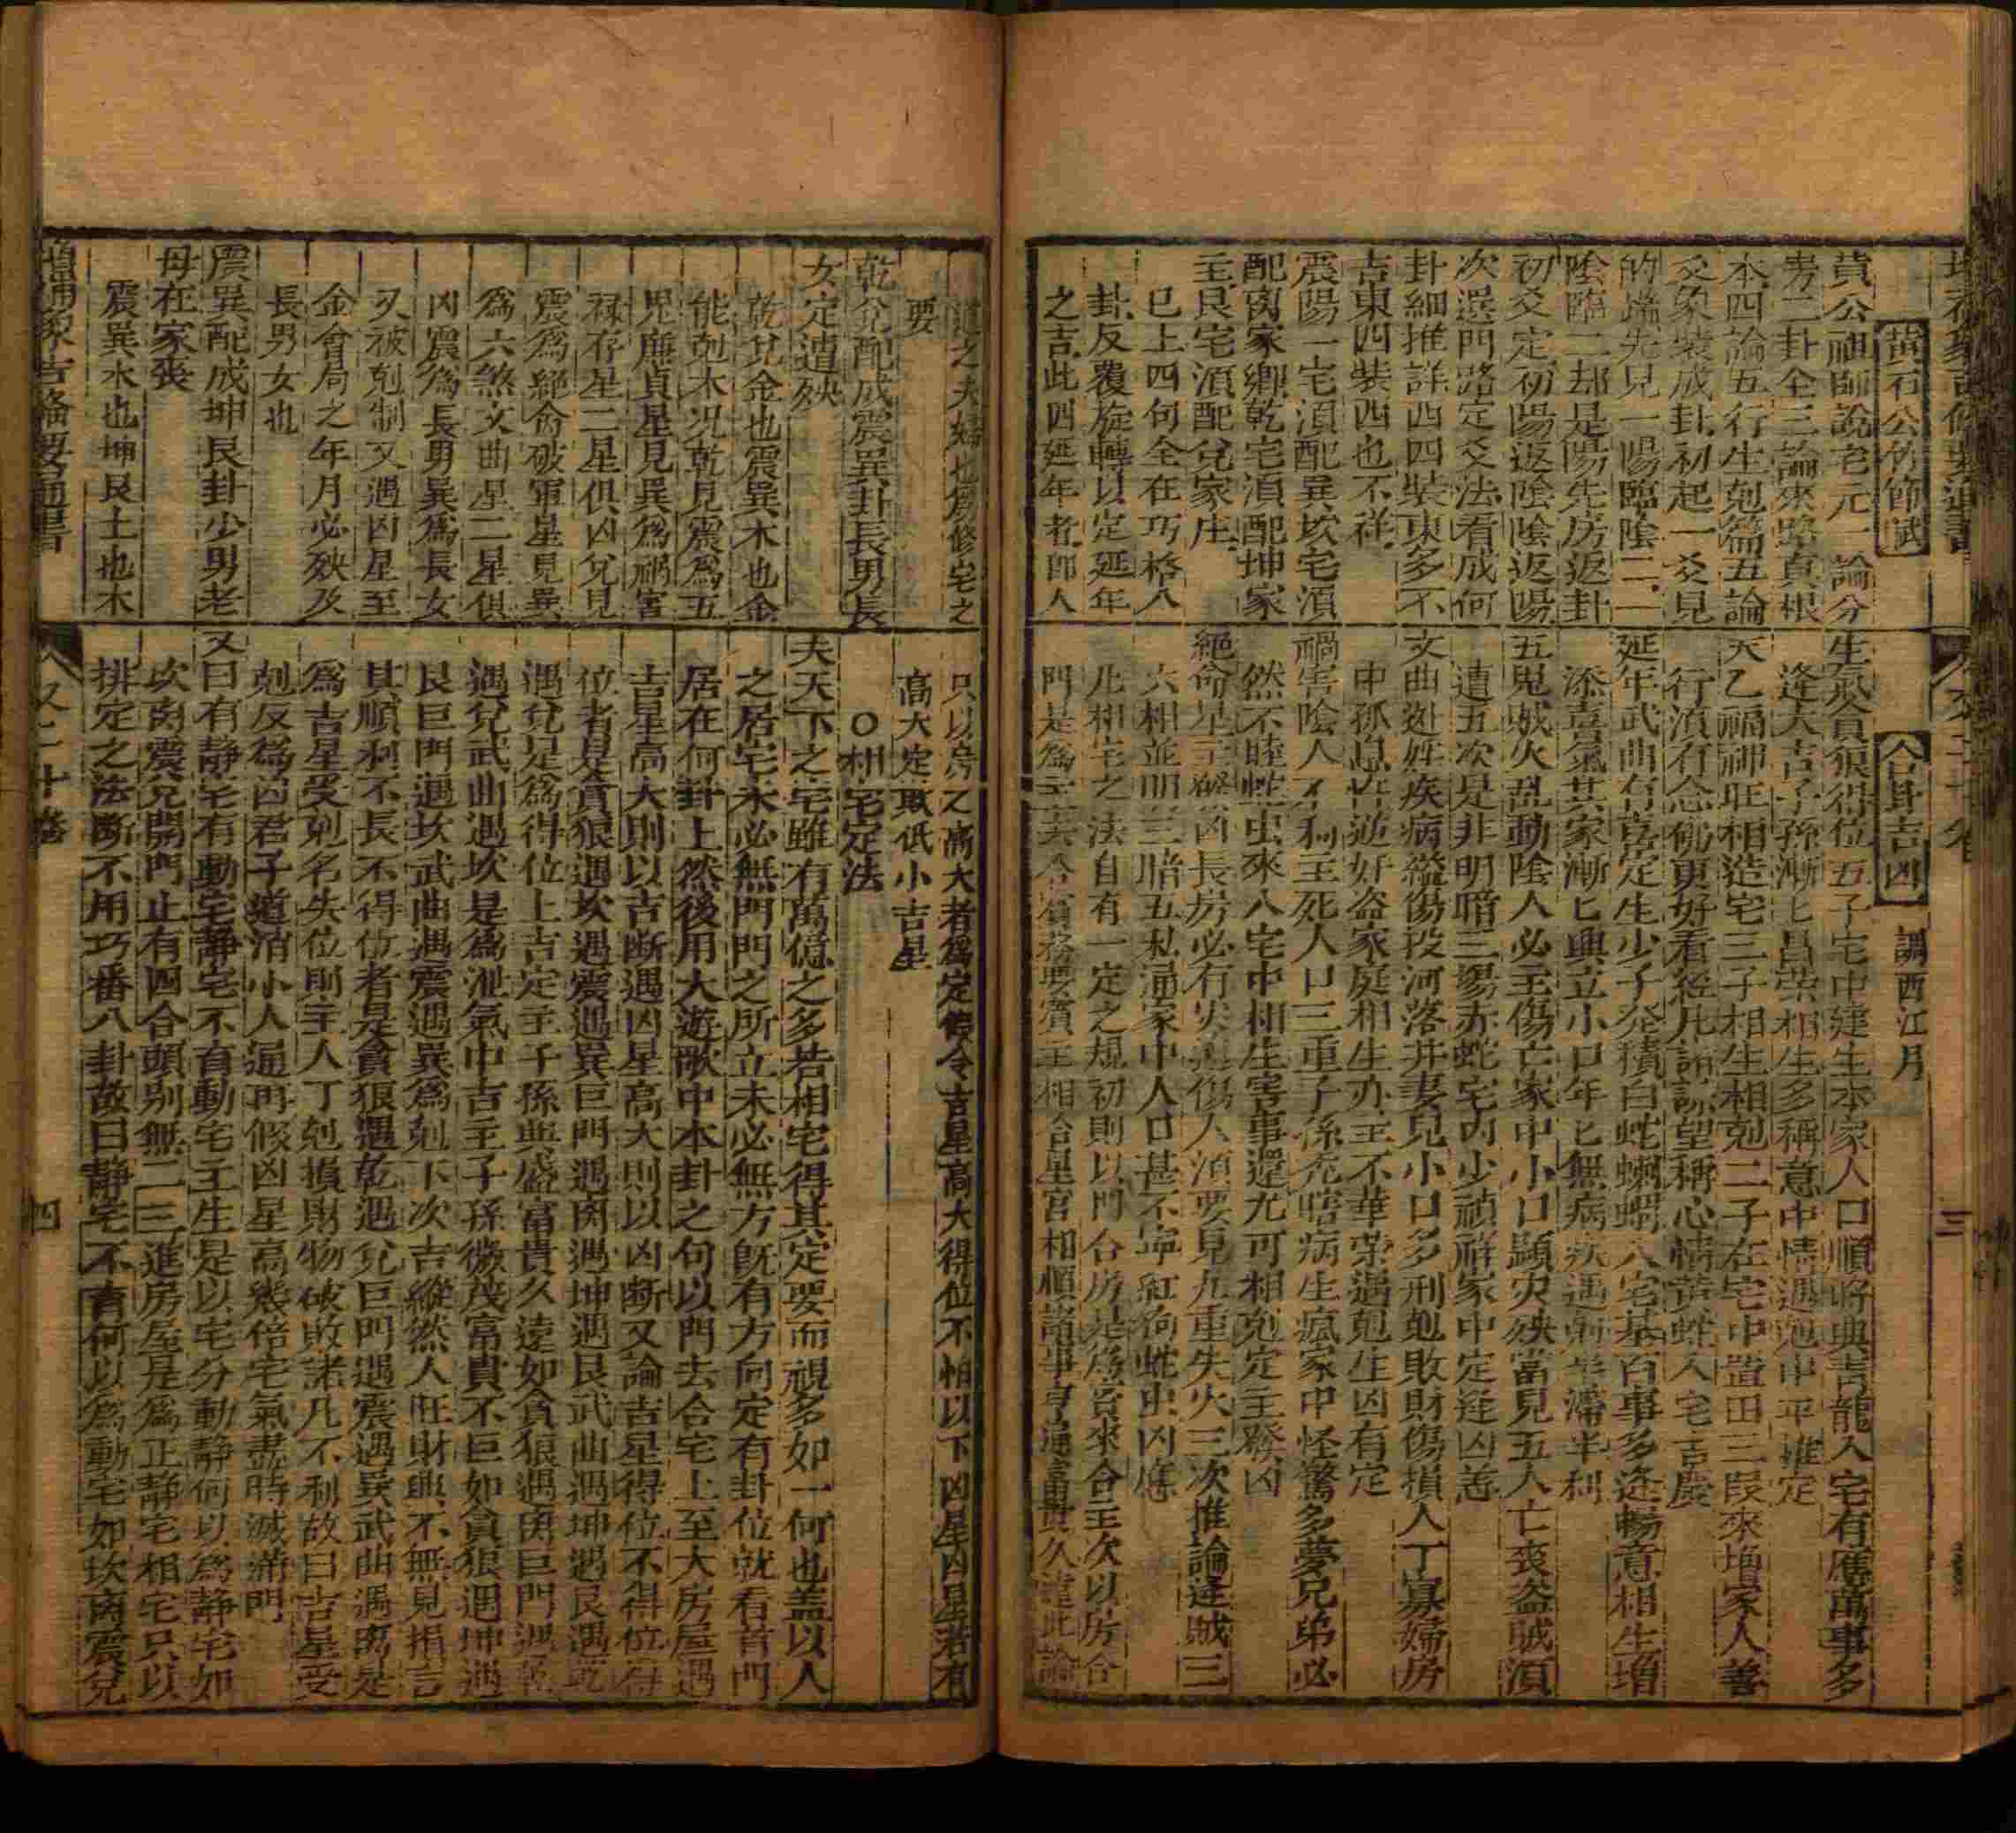 黃石公竹節賦
黃公祖師說宅元一論分
房二卦全三論來路真根
本四論五行生剋篇五論
爻象裝成卦初起一爻見
的端先見一陽臨陰二二
陰臨二却是陽先房返卦
初爻定初陽返陰陰返陽
次選門路定爻法看成何
卦細推詳西四裝東多不
吉東四裝西也不祥
震陽一宅湏配巽坎宅湏
配离家鄉乾宅湏配坤家
主艮宅湏配兌家庄
已上四句全在巧格八
卦反覆旋轉以定延年
之吉此四延年者即人
合卦吉凶 調西江月
生氣貪狼得位五子宅中建生本家人口順將興青龍入宅有應萬事多
逢大吉子孫漸匕昌荣相生多稱意中情遇剋中平推定
天乙福神旺相造宅三子相生相剋二子在宅中置田三叚來增家人善
行湏有念佛更好看经凡謀望稱心情黃蛇入宅吉慶
延年武曲有喜定生少子 白蛇 入宅基百事多逢畅意相生增
添喜氣其家漸匕興立小口年匕無病疾遇剋半 半利
五鬼贼火乱動陰人必主傷亡家中小口顕灾殃當見五人亡丧盗贼湏
遭五次是非明暗三塲赤蛇宅內少禎祥家中定逢凶善
文曲 疾病 傷投河落井妻兒小口多刑剋敗財傷損人丁寡婦房
中孤 好盗家庭相生亦主不華荣遇剋生凶有定
禍害陰人不利主死人口三重子孫 病生瘋家中怪驚多夢兄弟必
然不睦蛇虫來入宅中相生害事還尤可相剋定主發凶
絕命星主 凶長房必有灾 傷人湏要見九重失火三次推論逢贼三
六相並明三暗五私通家中人口甚不寕紅狗蛇虫凶應
此相宅之法自有一定之規初則以門合房 來合主次以房合
門是爲 主相合星宮相順諸事亨通富貴久遠此論
三
道之夫婦也爲修宅之
要
乾兌配成震巽卦長男長
女定遭殃
乾兌金也震巽木也金
能剋木况乾見震爲五
鬼廉貞星見巽爲禍害
祿存星二星俱凶兌見
震爲絕命破軍星見巽
爲六煞文曲星二星俱
凶震爲長男巽爲長女
又被剋制又遇凶星至
金會局之年月必殃及
長男女也
震巽配成坤艮卦少男老
母在家丧
震巽木也坤艮土也木
只以房之高大者爲定假令吉星高大得位不怕以下凶星凶星若有
高大定敢低小吉星
○相宅定法
夫天下之宅雖有萬億之多若相宅得其定要而視多如一何也盖以人
之居宅未必無門門之所立未必無方旣有方向定有卦位就看首門
居在何卦上然後用大遊歌中本卦之句以門去合宅上至大房屋遇
吉星高大則以吉断遇凶星高大則以凶断又論吉星得位不得位得
位者是貪狼遇坎遇震遇巽巨門遇离遇坤遇艮武曲遇坤遇艮遇乾
遇兌是爲得位上吉定主子孫興盛富貴久遠如貪狼遇离巨門遇乾
遇兌武曲遇坎是爲泄氣中吉主子孫微茂富貴不巨如貪狼遇坤遇
艮巨門遇坎武曲遇震遇巽爲剋下次吉縱然人旺財興不無見損言
其順利不長不得位者是貪狼遇乾遇兌巨門遇震遇巽武曲遇离是
爲吉星受剋名失位則主人丁剋損財物破敗諸凡不利故曰吉星受
剋反爲凶君子道消小人通再假凶星高幾倍宅氣盡時滅滿門
又曰有静宅有動宅静宅不育動宅主生是以宅分動静何以爲静宅如
坎离震兌開門止有四合頭别無二三進房屋是爲正静宅相宅只以
排定之法断不用巧番八卦故曰静宅不育何以爲動宅如坎离震兌
增補象吉備要通書
又二十卷
四